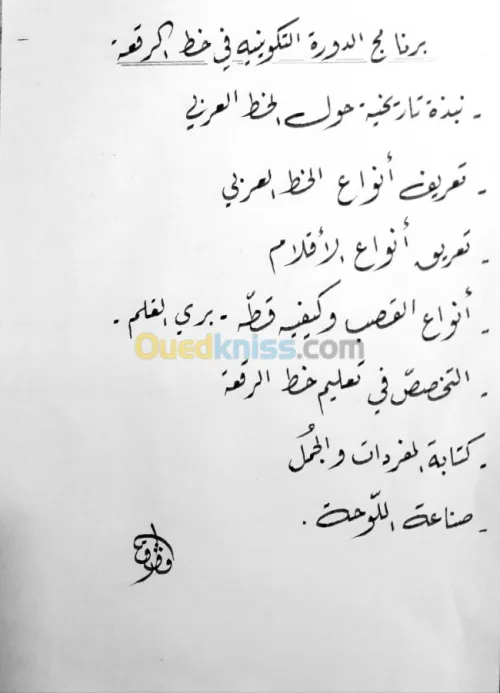 برنامج الدورة التكوينية في خط الرقعة
- نبذة تاريخية حول الخط العربي
- تعريف أنواع الخط العربي
- تعريف أنواع الأقلام
- أنواع القصب وكيفية قطّه - بري القلم -
Ouedkniss.com
- التخصصّ في تعليم خط الرقعة
- كتابة المفردات والجُمل
- صناعة اللّوحة .